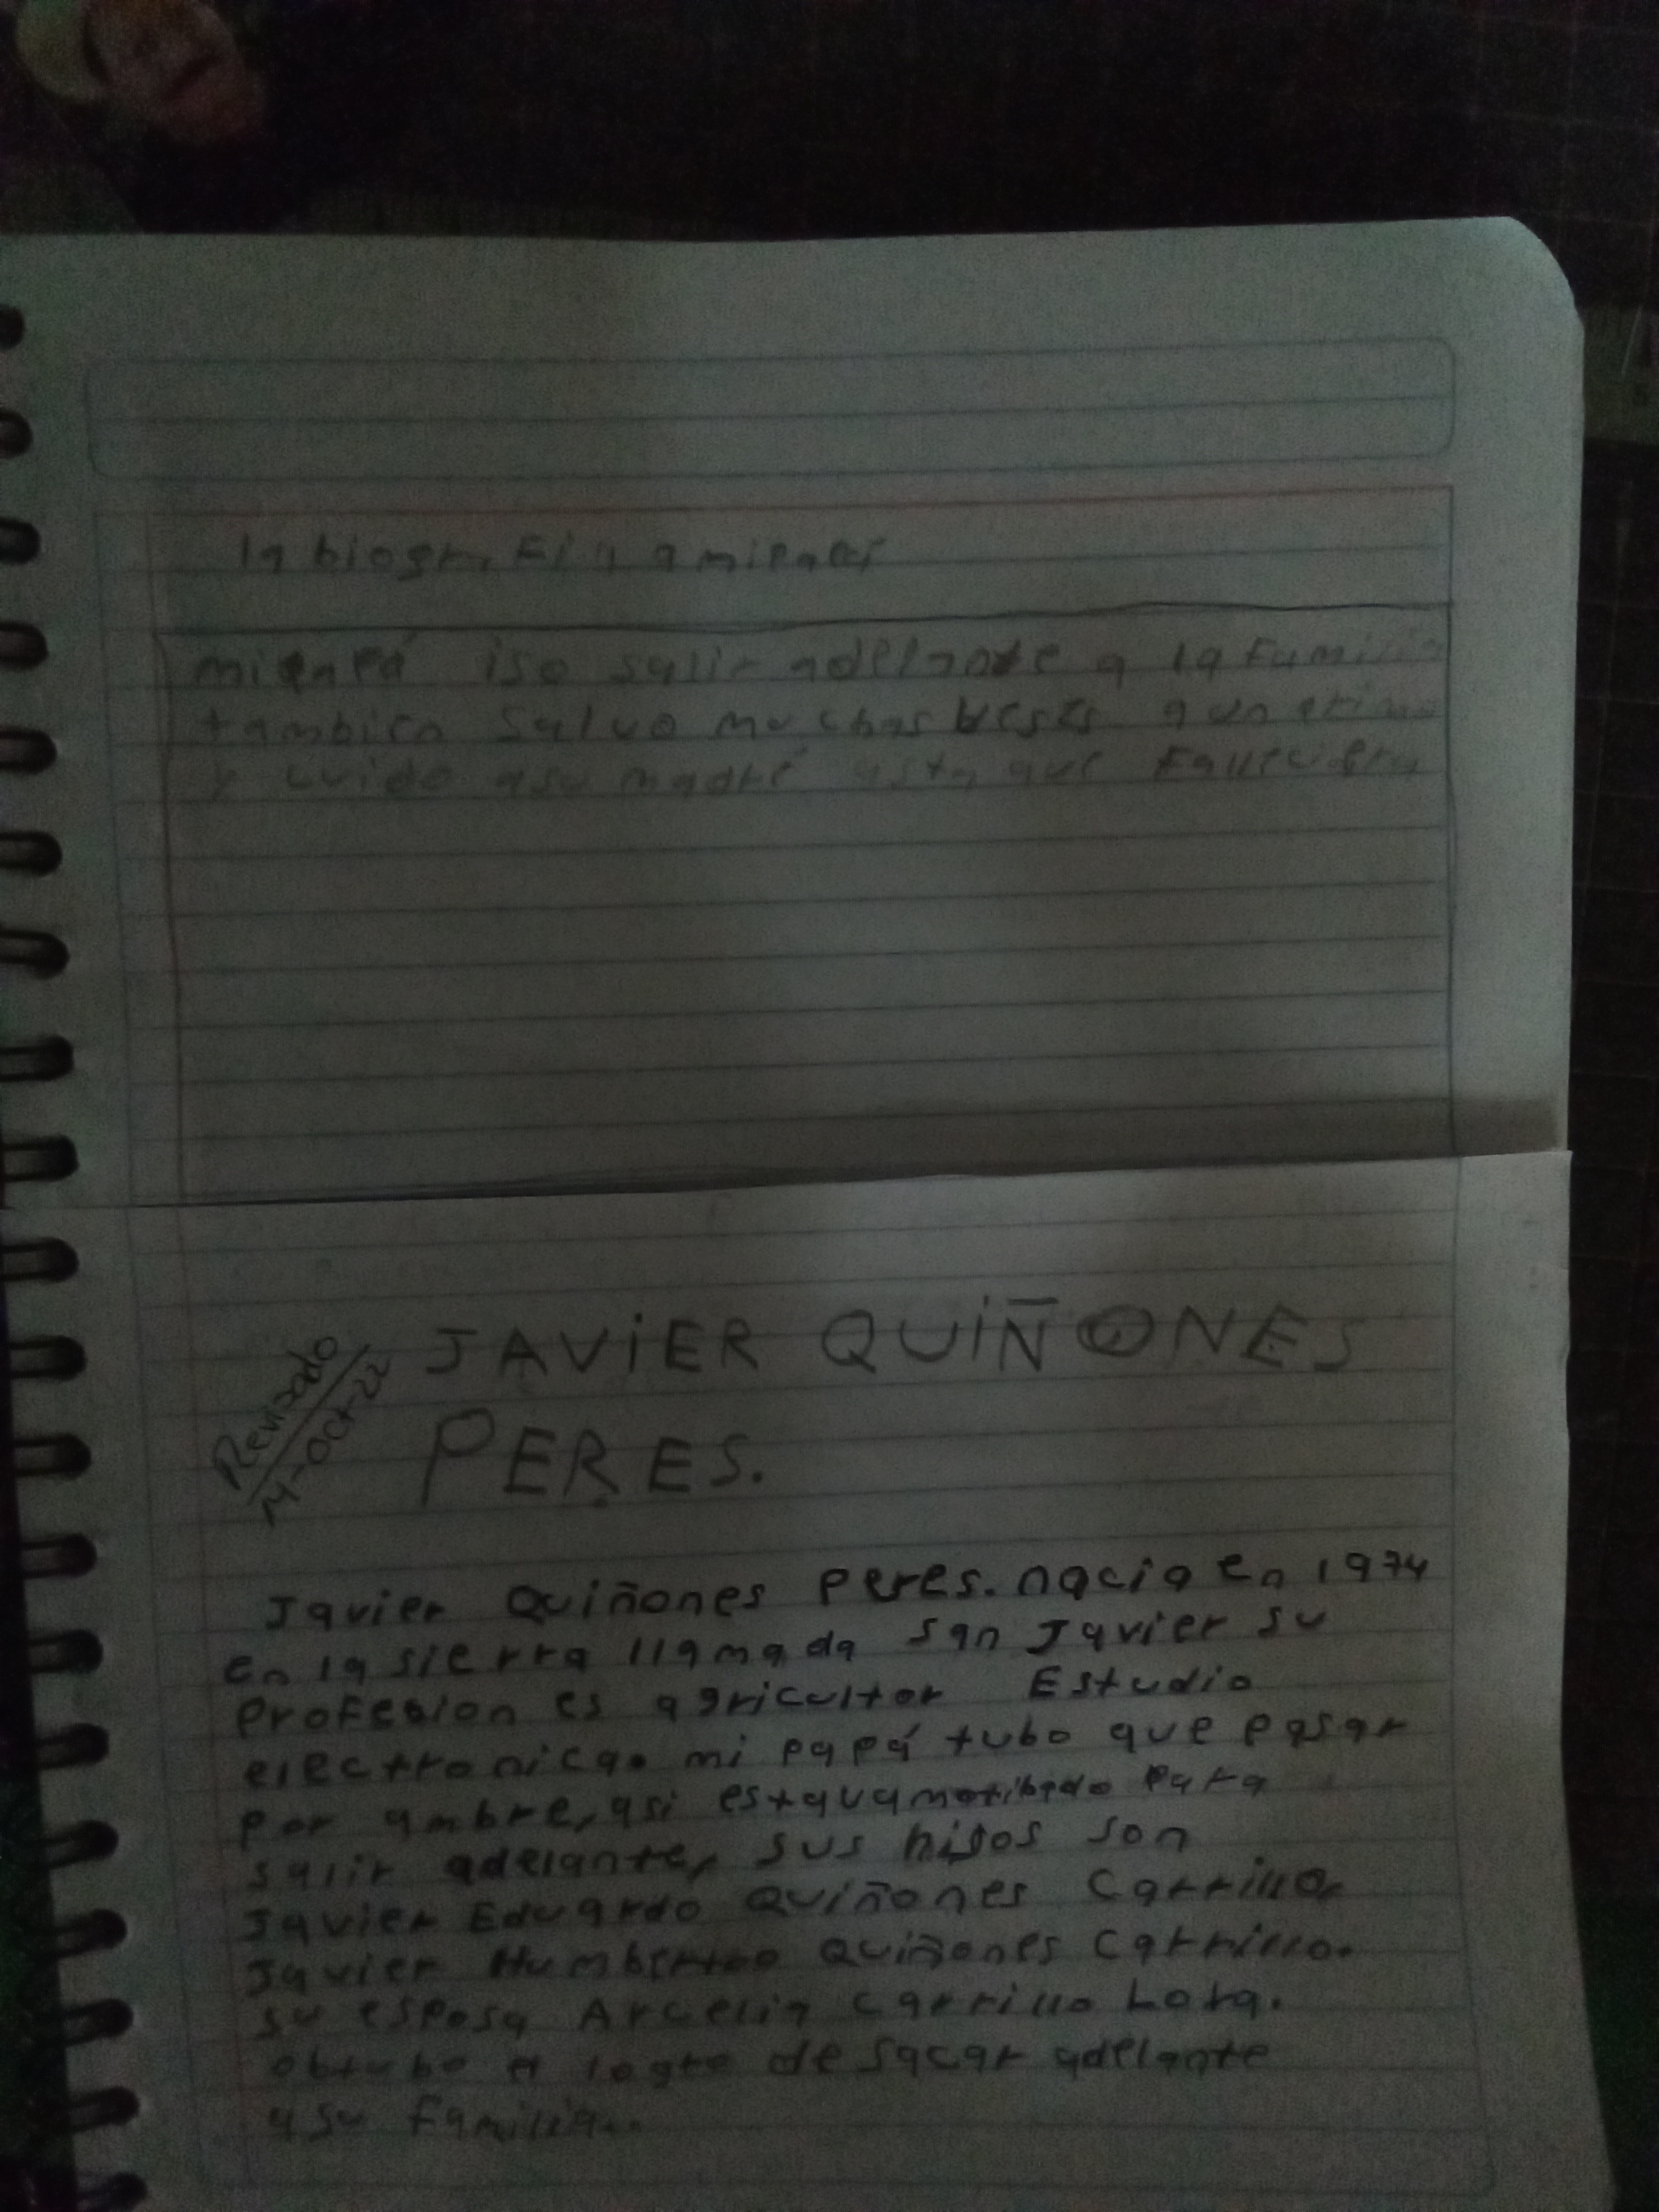 la biografia a mi papá
mi papá iso salir adelante a la familia
tambien salvo muchas veses a un primo
y cuido a su madre asta que falleciera
Revisado
14-oct-22
JAViER QUiÑONES
PERES.
Javier Quiñones Peres. nacio en 1974
en la sierra llamada san Javier su
Profesion es agricultor Estudio
electronica. mi papá tubo que pasar
por ambre, asi estaua motibado para
salir adelante, sus hijos son
Javier Eduardo Quiñones Carrillo,
Javier Humberto Quiñones Carrillo.
su esposa Arcelia Carrillo Lora.
obtubo el logro de sacar adelante
a su familia..